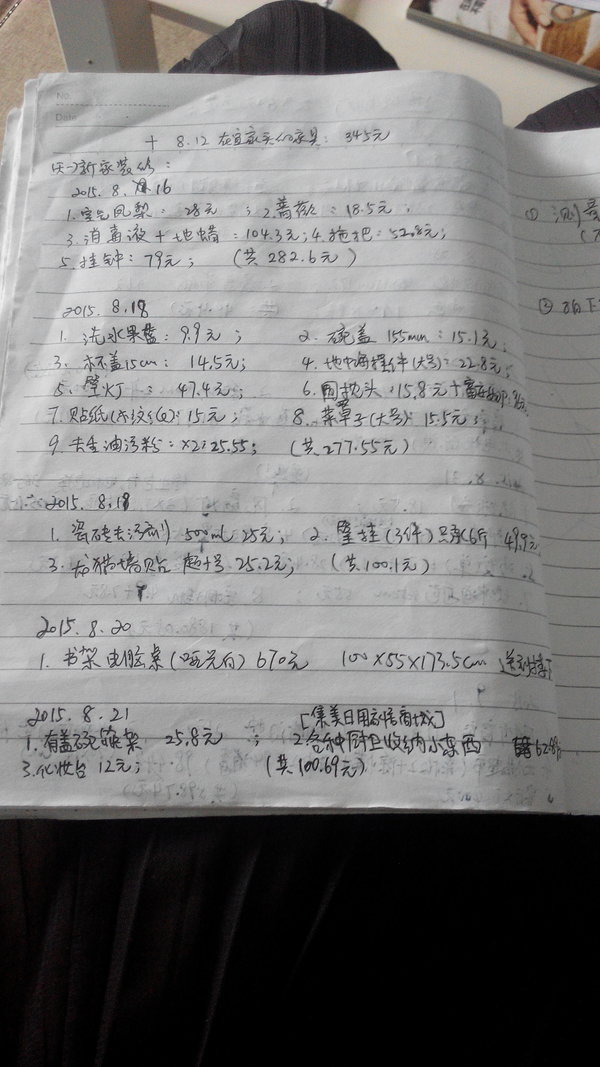 No.
Date
+ 8.12 在宜家买的家具: 345元
新家装修:
2015.8.16
1.空气凤梨: 28元 ; 2.蔷薇: 18.5元;
3.消毒液+地蜡: 104.3元; 4.拖把: 52.8元;
5.挂钟: 79元; (共282.6元)
2015.8.18
1. 洗水果盘: 9.9元; 2. 碗盖 155mm: 15.1元;
3. 杯盖15cm: 14.5元; 4. 地中海 (大号): 22.8元;
5. 壁灯: 47.4元; 6. 枕头: 15.8元+
7.贴纸(木纹): 15元; 8. 菜罩子(大号): 15.5元;
9. 去重油污粉: ×2: 25.55; (共277.55元)
2015.8.19
1. 瓷砖去污剂 500mL 25元; 2. 壁挂(3件)只承6斤 49.9元
3. 龙猫墙贴 超大号 25.2元; (共100.1元)
2015.8.20
1. 书架电脑桌(哑光白) 670元 100×55×173.5cm 送到楼下
2015.8.21 [集美日用 商城]
1.有盖碗碟架 25.8元 ; 2.各种厨卫收纳小东西
3.化妆台 12元; (共100.69元)
①
②